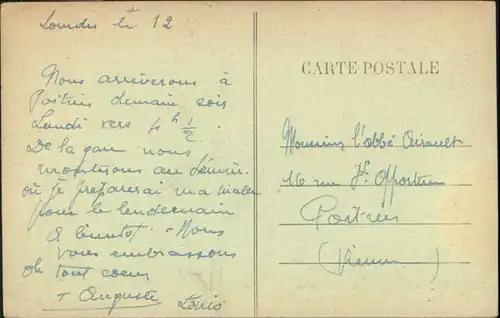 Lourdes le 12
Nous arriverons à
Poitiers demain soir
Lundi vers 4 h 1/2.
De la gare nous
montrons au Sémin.
où je préparerai ma malle
pour le lendemain
A bientôt - Nous
vous embrassons
de tout coeur
+ Auguste Louis
CARTE POSTALE
Monsieur l'abbé
16 rue
Poitiers
(Vienne)